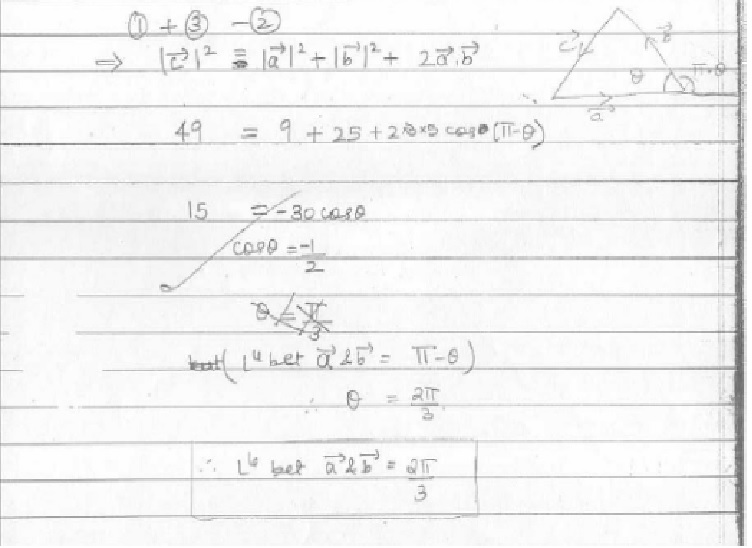 ① + ③ - ②
⇒ |c⃗|² = |a⃗|² + |b⃗|² + 2a⃗.b⃗
c⃗ b⃗ θ π-θ a⃗
49 = 9 + 25 + 2.3×5 cos (π-θ)
15 = -30 cosθ
cosθ = -1/2
θ = π/3
(L⁶ bet a⃗ & b⃗ = π-θ)
∴ θ = 2π/3
∴ L⁶ bet a⃗ & b⃗ = 2π/3